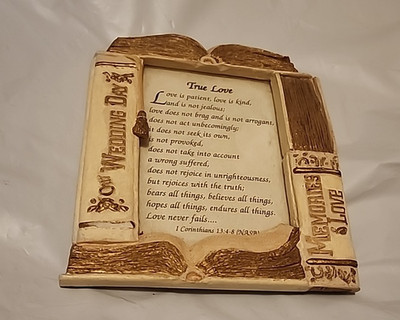 Our Wedding Day
True Love
Love is patient, love is kind,
and is not jealous;
love does not brag and is not arrogant,
does not act unbecomingly;
it does not seek its own,
is not provoked,
does not take into account
a wrong suffered,
does not rejoice in unrighteousness,
but rejoices with the truth;
bears all things, believes all things,
hopes all things, endures all things.
Love never fails....
I Corinthians 13:4-8 (NASB)
Memories
& Love